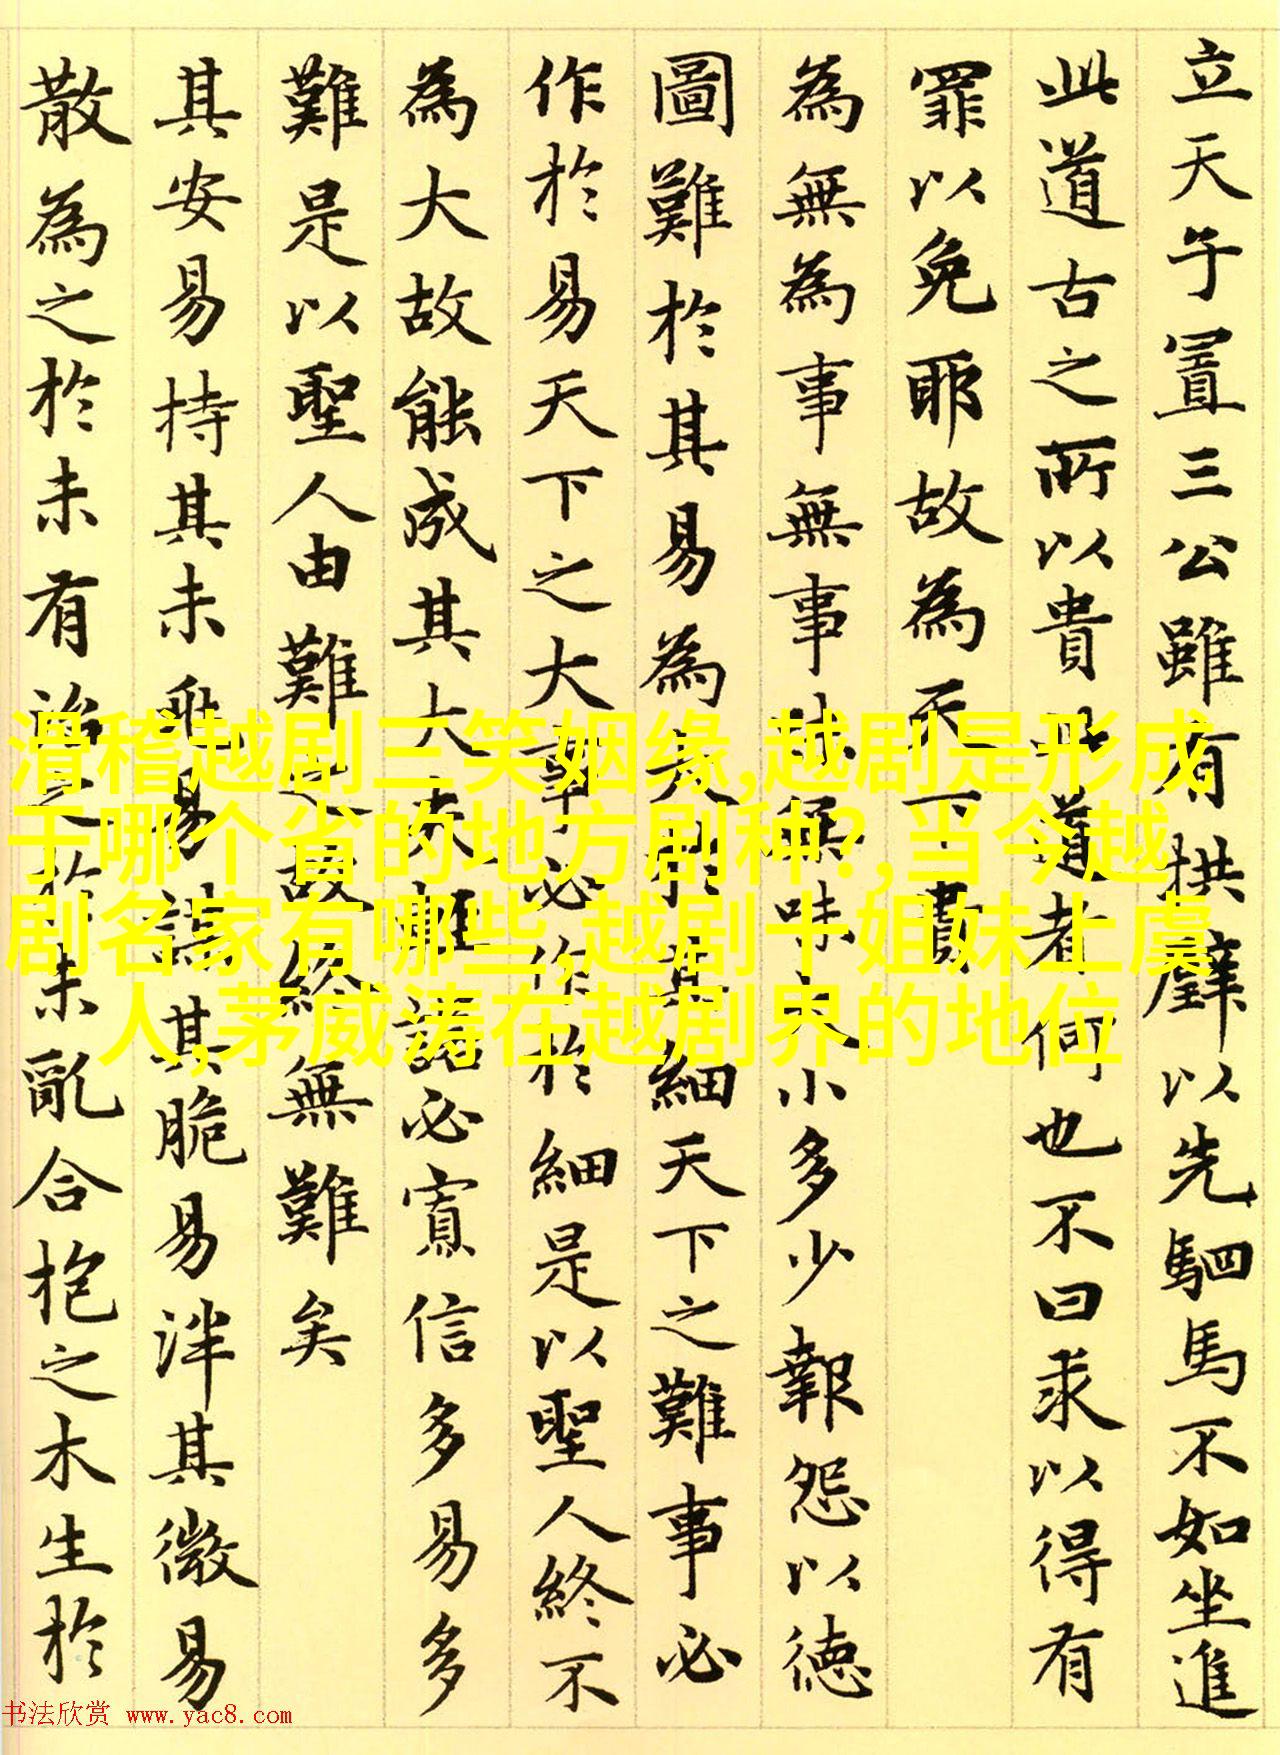 立天子置三公雖有拱璧以先駟馬不如坐進
此道古之所以貴此道者何也不曰求以得有
罪以免耶故為天下貴
為無為事無事味無味大小多少報怨以德
圖難於其易為大於其細天下之難事必
作於易天下之大事必作於細是以聖人終不
為大故能成其大夫輕諾必寡信多易多
難是以聖人由難之故終無難矣
其安易持其未兆易謀其脆易泮其微易
散為之於未有治之於未亂合抱之木生於
滑稽越剧三笑姻缘,越剧是形成
于哪个省的地方剧种?,当今越
剧名家有哪些,越剧十姐妹上虞
人,茅威涛在越剧界的地位
书法欣赏 www.yac8.com